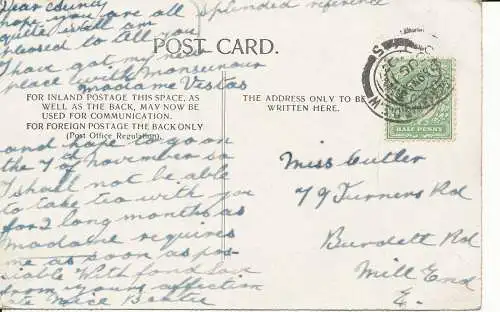 Dear Aunty
hope you are all splended
quite well am
pleased to tell you
I have got my
place with Monsieur
Madame Vestas
POST CARD.
FOR INLAND POSTAGE THIS SPACE, AS
WELL AS THE BACK, MAY NOW BE
USED FOR COMMUNICATION.
FOR FOREIGN POSTAGE THE BACK ONLY
(Post Office Regulation).
and hope to go on
the 7 of november so
I shall not be able
to take tea with you
for 2 long months as
Madame requires
me as soon as pos-
sible With fond love
from your affection
ate Niece
THE ADDRESS ONLY TO BE
WRITTEN HERE.
HALF PENNY
Miss Cutler
79 Turners Rd
Burdett Rd
Mill End
E.